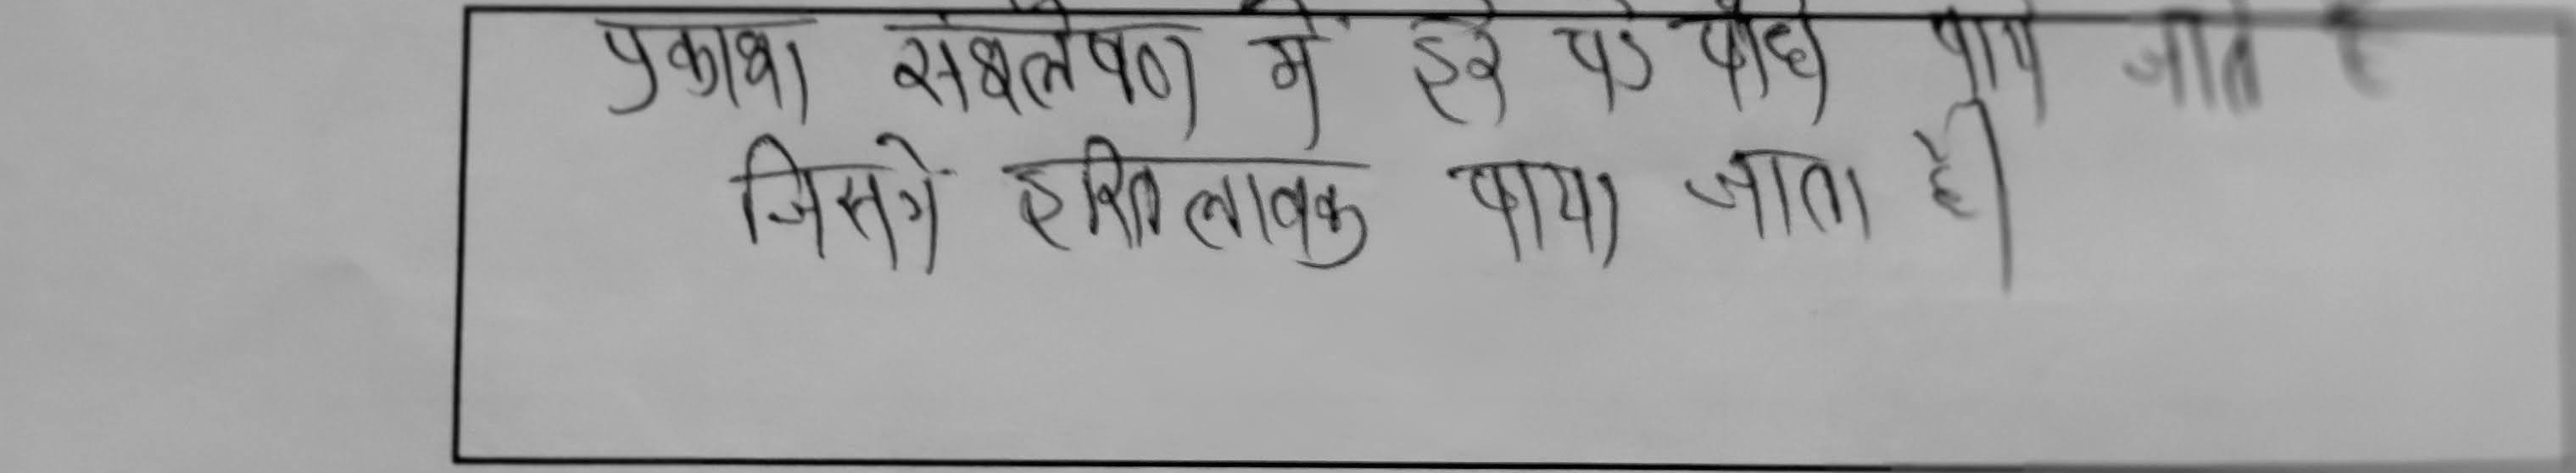 प्रकाश संश्लेषण में हरे पेड़ पौधे पाये जाते है
जिसमें हरित लवक पाया जाता है।